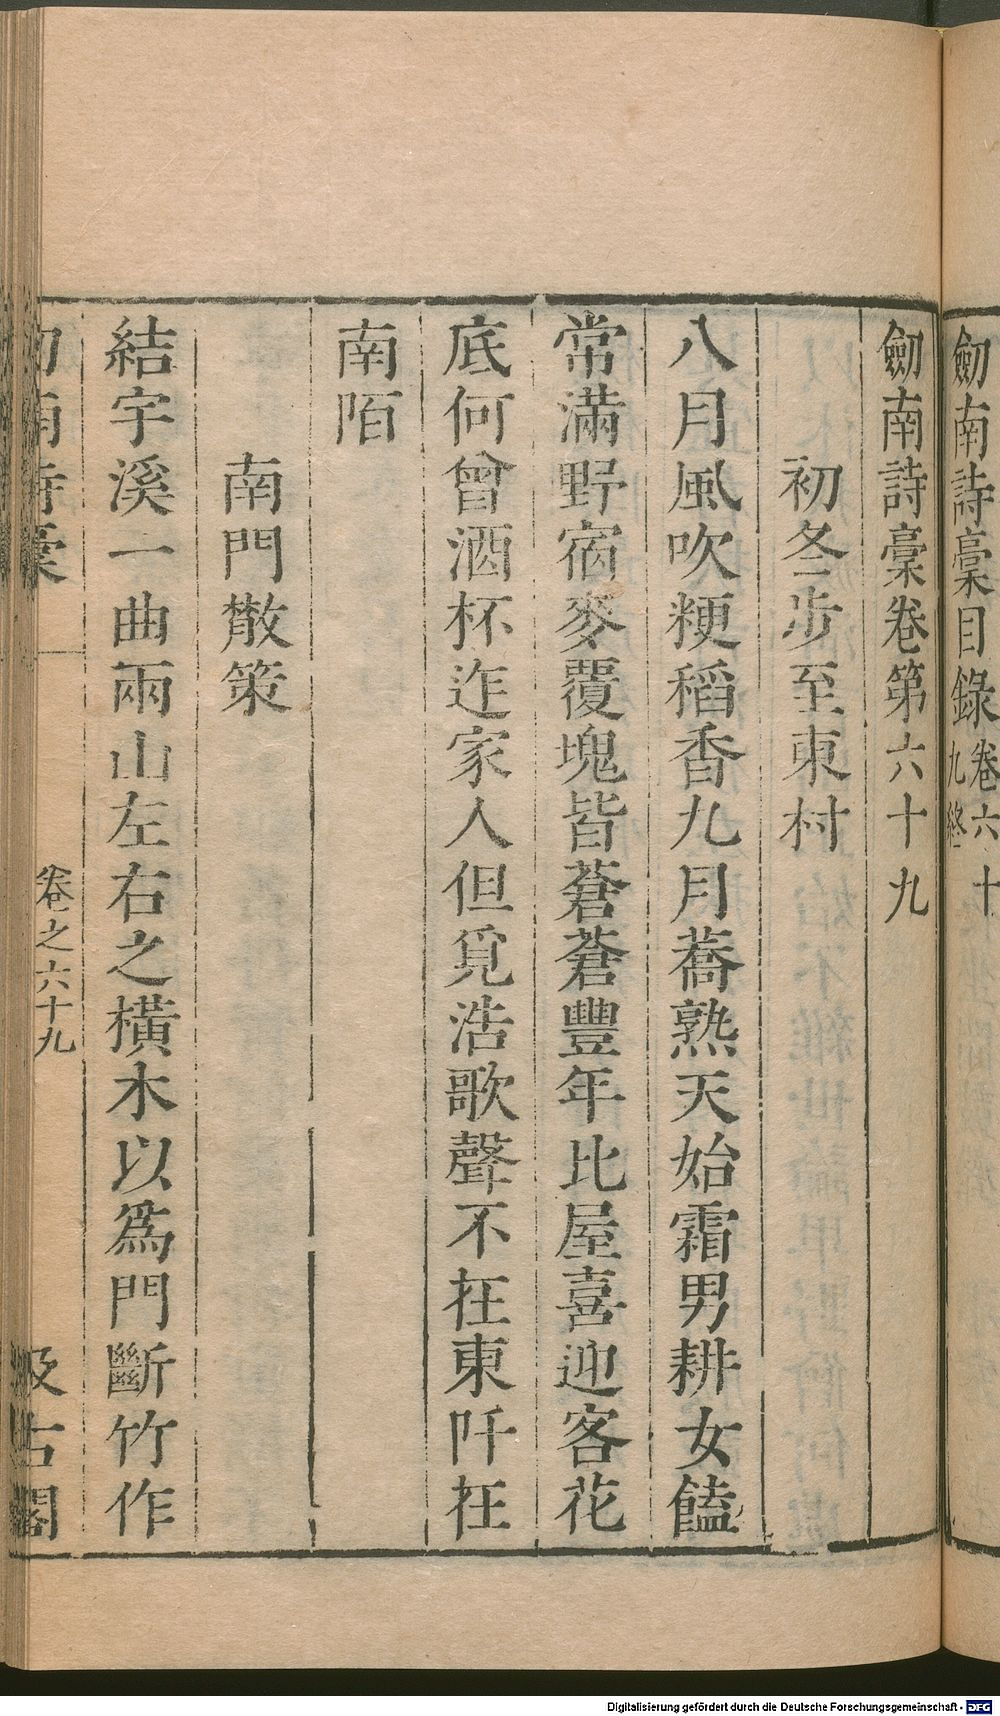 劒南詩槀目錄卷六十九終
劒南詩槀卷第六十九
初冬步至東村
八月風吹粳稻香九月蕎熟天始霜男耕女饁
常滿野宿麥覆塊皆蒼蒼豐年比屋喜迎客花
底何曾酒杯迮家人但覓浩歌聲不在東阡在
南陌
南門散策
結宇溪一曲兩山左右之橫木以爲門斷竹作
劒南詩槀
卷之六十九
汲古閣
Digitalisierung gefördert durch die Deutsche Forschungsgemeinschaft - DFG